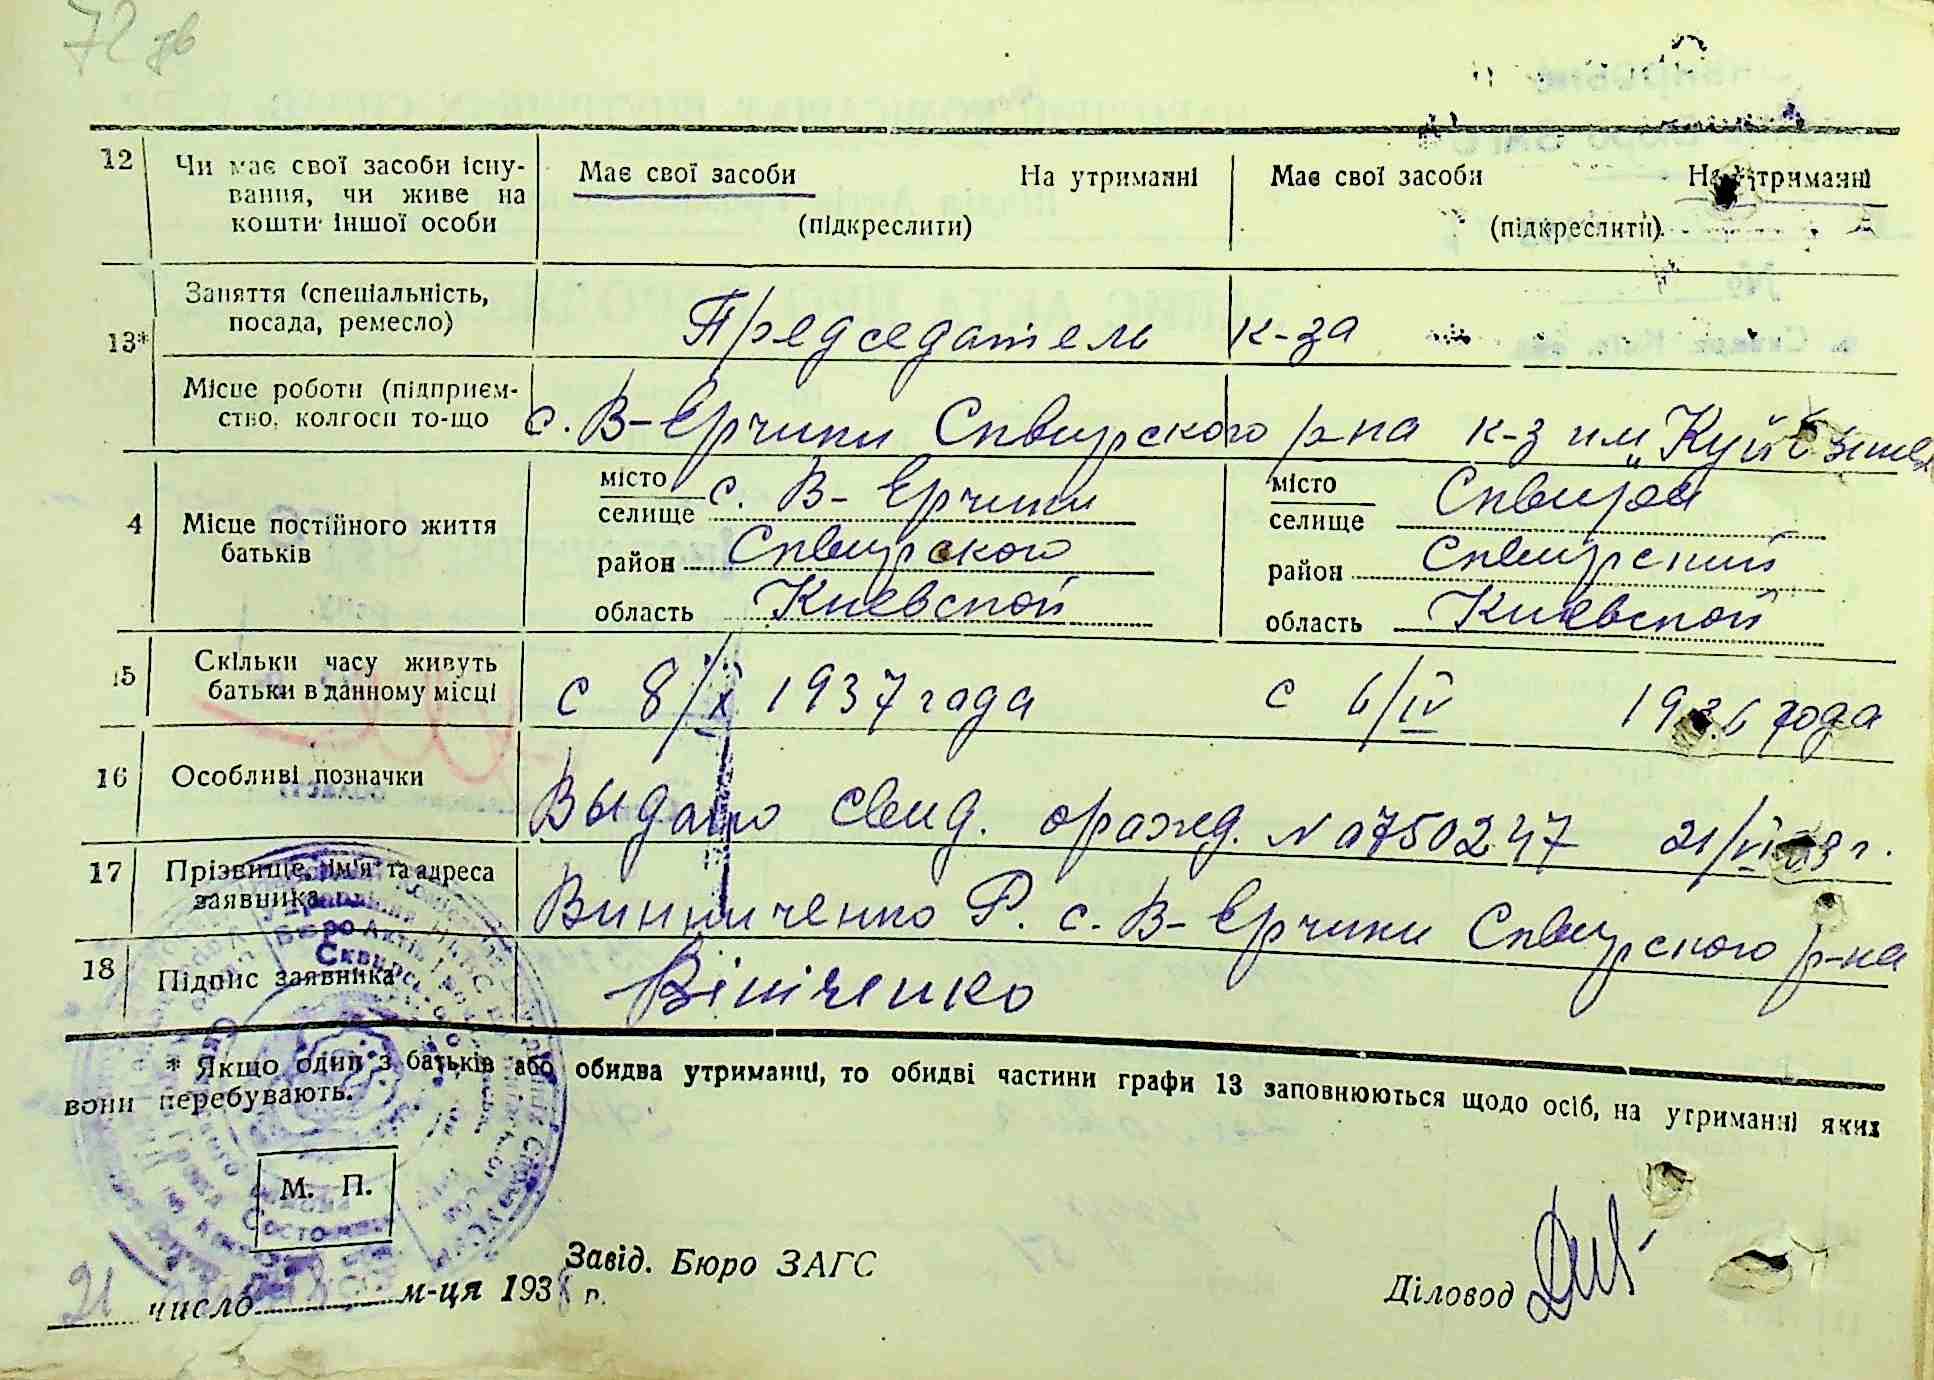 72 зв
12 Чи має свої засоби існу- Має свої засоби На утриманні Має свої засоби На утриманні
вання, чи живе на
кошти іншої особи (підкреслити) (підкреслити)
Заняття (спеціальність, Председатель к-за
посада, ремесло)
13*
Місце роботи (підприєм- с. В-Ерчики Сквирского р-на к-з им „Куйбышев
ство, колгосп то-що
місто с. В-Ерчики місто Сквира
селище селище
4 Місце постійного життя
батьків район Сквирского район Сквирский
область Киевской область Киевской
15 Скільки часу живуть с 8/X 1937 года с 6/IV 1936 года
батьки в данному місці
16 Особливі позначки Выдано свид. о рожд. N 0750247 21/VI 38 г.
17 Прізвище, ім'я та адреса Винниченко Р. с. В-Ерчики Сквирского р-на
заявника
18 Підпис заявника Вініченко
* Якщо один з батьків або обидва утриманці, то обидві частини графи 13 заповнюються щодо осіб, на утриманні яких
вони перебувають.
М. П.
Завід. Бюро ЗАГС
21 число м-ця 1938 р.
Діловод